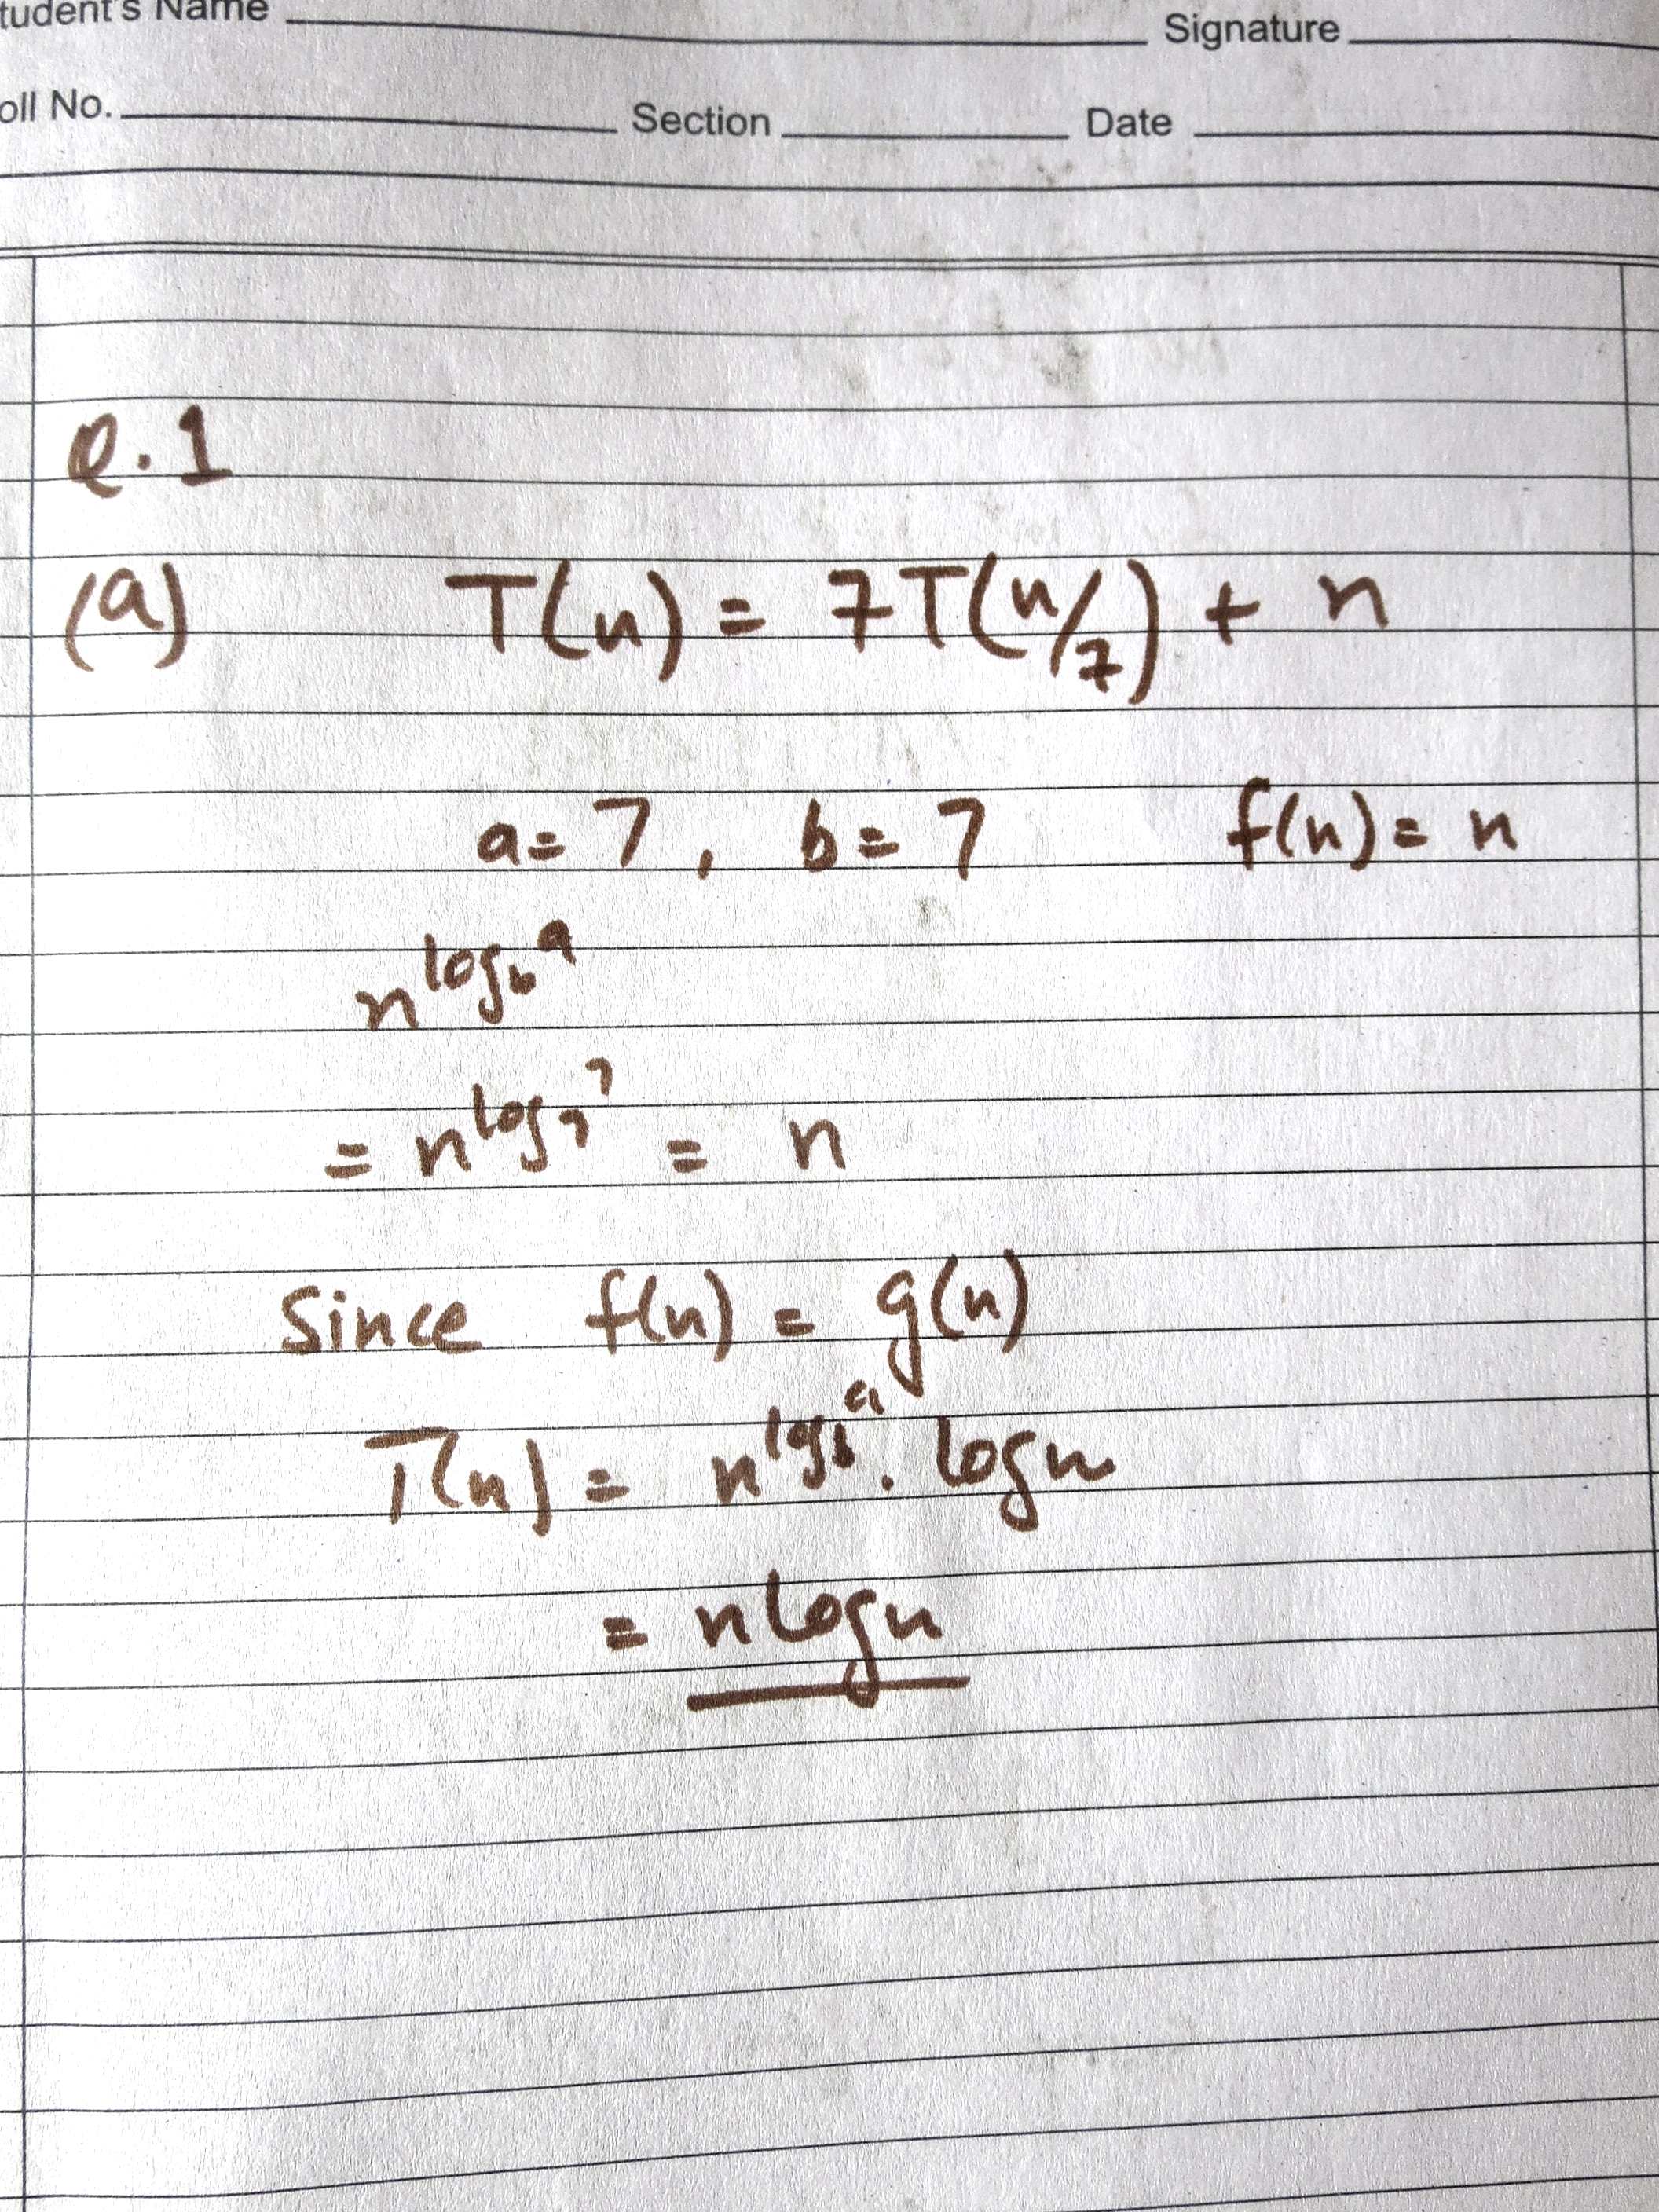 tudent's Name Signature
oll No. Section Date
Q.1
(a) T(n) = 7T(n/7) + n
a = 7, b = 7 f(n) = n
n^log_b^a
= n^log_7^7 = n
Since f(n) = g(n)
T(n) = n^log_b^a . log n
= n log n